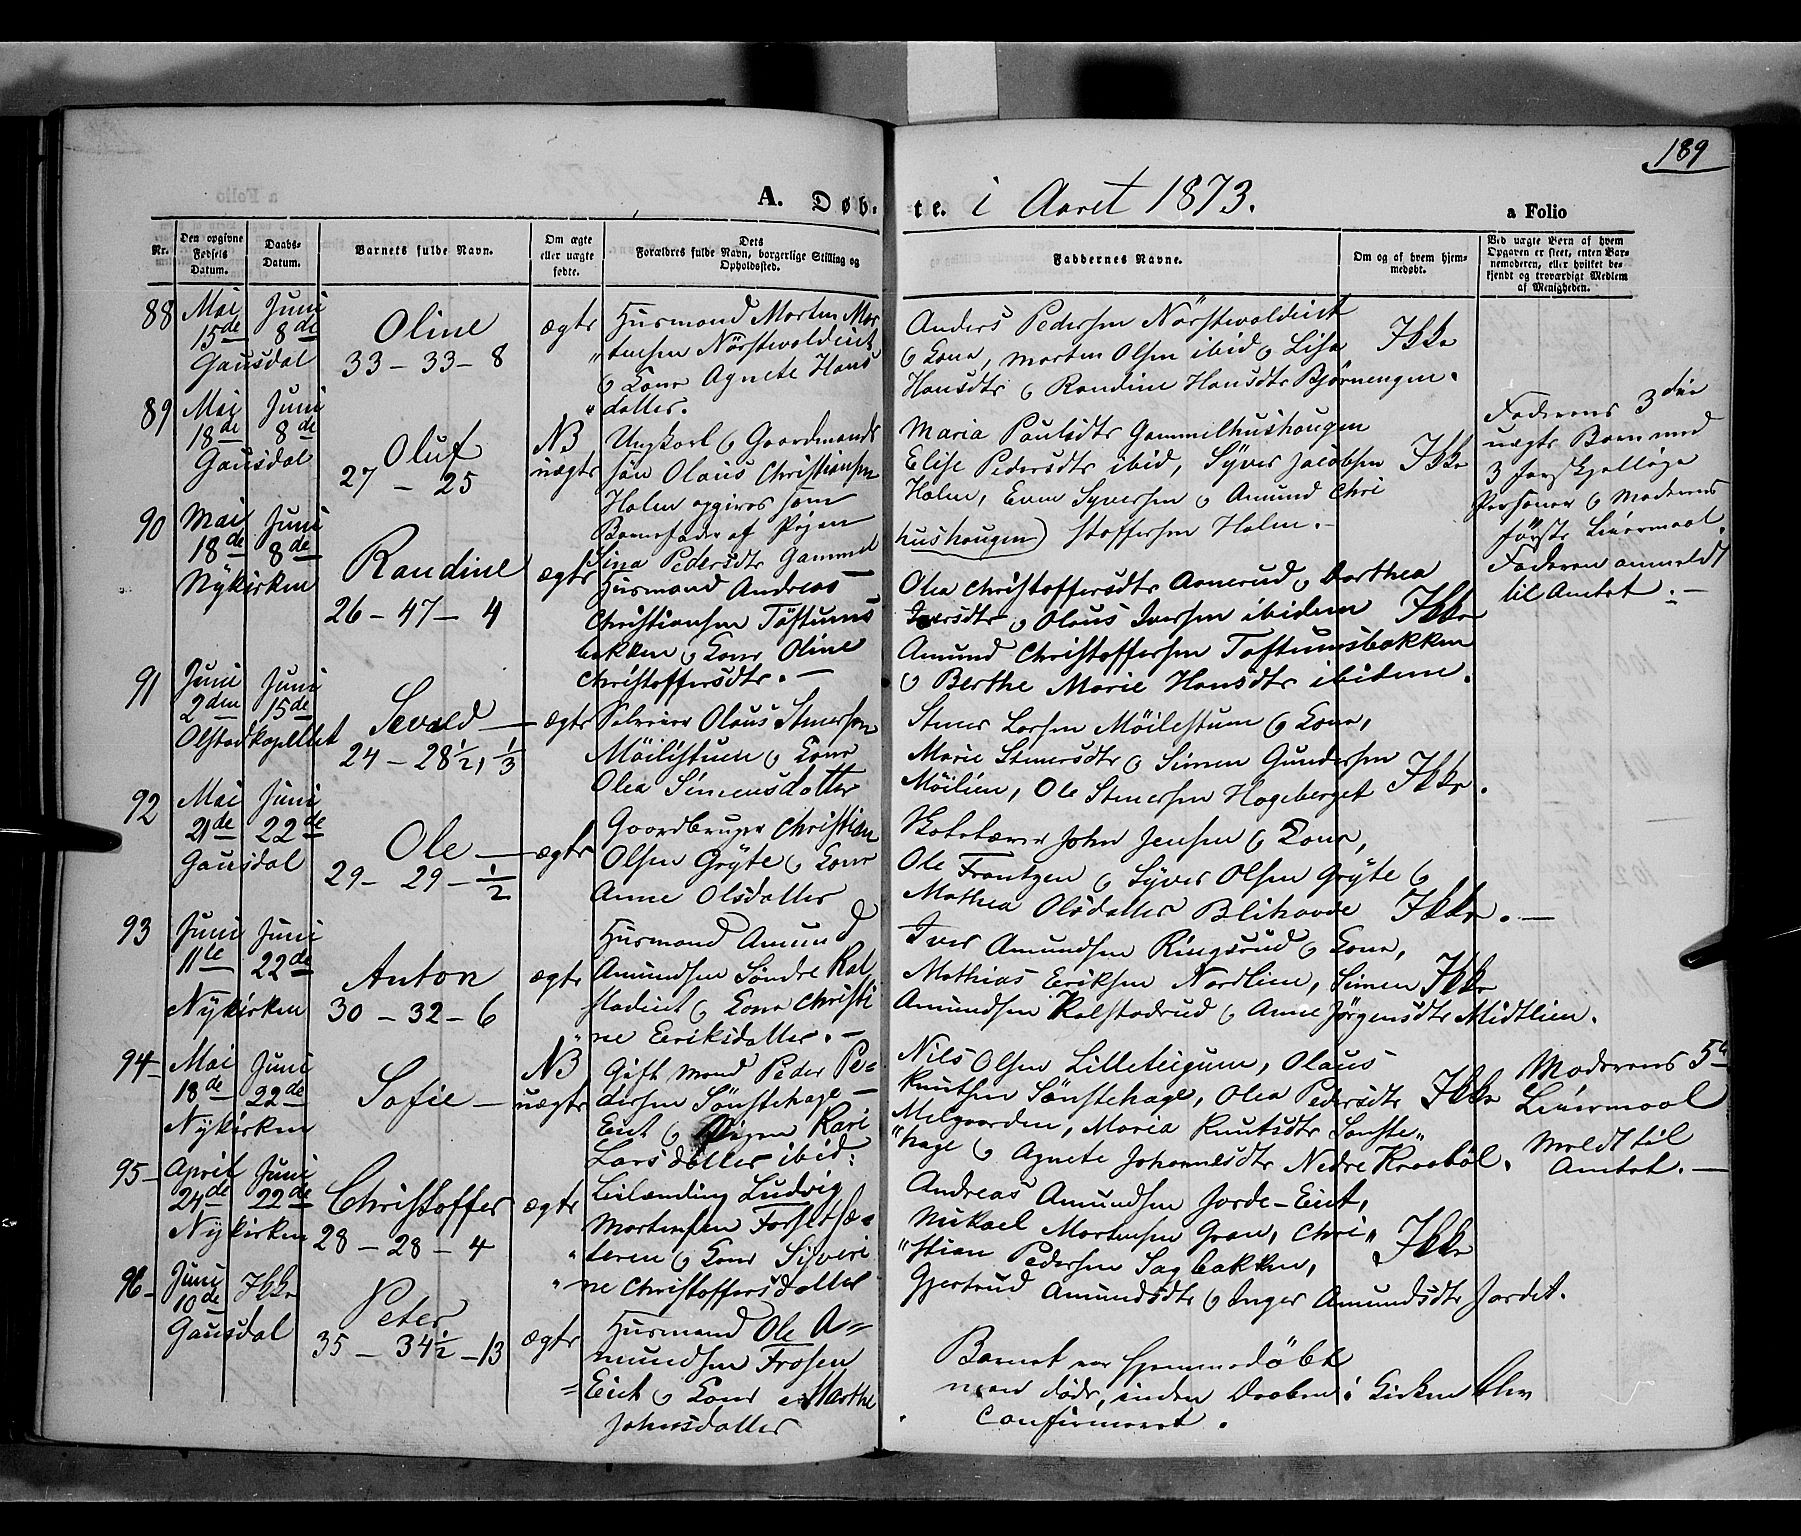 189
A. Døb- te. i Aaret 1873. a Folio
Nr.
Den opgivne Fødsels Datum.
Daabs-Datum.
Barnets fulde Navn.
Om ægte eller uægte fødte.
Dets Forældres fulde Navn, borgerlige Stilling og Opholdssted.
Faddernes Navne.
Om og af hvem hjemmedøbt.
Ved uægte Børn af hvem Opgaven er skeet, enten Barnemoderen, eller hvilket bekjendt og troværdigt Medlem af Menigheden.
88 Mai 15de Juni 8de
Gausdal
Oline
33 - 33 - 8
ægte
Husmand Morten Mor
"tensen Nörstevoldeiet
& Kone Agnete Hans
"datter.
Anders Pedersen Nörstevoldeiet
& Kone, Morten Olsen ibid & Lisa
Hansdtr & Randine Hansdtr Bjørnengen.
Ikke
89 Mai 18de Juni 8de
Gausdal
Oluf
27 - 25
NB
uægte
Ungkarl & Gaardmands
søn Olaus Christiansen
Holm opgives som
Barnefader af Pigen
Sina Pedersdtr Gammel
Maria Paulsdtr Gammelhushaugen
Elise Pedersdtr ibid, Syver Jacobsen
Holm, Even Syversen & Amund Chri
hushaugen) stoffersen Holm.-
Ikke
Faderens 3die
uægte Barn med
3 forskjellige
Personer & Moderens
første Leiermaal.
Faderen anmeldt
til Amtet.-
90 Mai 18de Juni 8de
Nykirken
Randine
26 - 47 - 4
ægte
Husmand Andreas
Christiansen Töftums
bakken & Kone Oline
Christoffersdtr.-
Olea Christoffersdtr Aanerud, Dorthea
Iversdtr & Olaus Iversen ibidem
Amund Christoffersen Toftumsbakken
& Berthe Marie Hansdtr ibidem.
Ikke
91 Juni 2den Juni 15de
Olstadkapellet
Sevald
24 - 28 1/2, 1/3
ægte
Selveier Olaus Stenersen
Möilistuen & Kone
Olea Simensdatter
Stener Larsen Möilistuen & Kone,
Marie Stenersdtr & Simen Gundersen
Möilien, Ole Stenersen Hageberget
Ikke.
92 Mai 21de Juni 22de
Gausdal
Ole
29 - 29 - 1/2
ægte
Gaardbruger Christian
Olsen Gryte & Kone
Anne Olsdatter
Skolelærer John Jensen & Kone,
Ole Frantzen & Syver Olsen Gryte &
Mathea Olsdatter Blihovde
Ikke.-
93 Juni 11te Juni 22de
Nykirken
Anton
30 - 32 - 6
ægte
Husmand Amund
Amundsen Søndre Kal
stadeiet & Kone Christi
"ne Eriksdatter.-
Iver Amundsen Ringsrud & Kone,
Mathias Eriksen Nordlien, Simen
Amundsen Kalstadrud & Anne Jörgensdtr Midtlien.
Ikke
94 Mai 18de Juni 22de
Nykirken
Sofie
NB
uægte
Gift Mand Peder Pe=
dersen Sönstehage-
Eiet & Pigen Kari
Larsdatter ibid:
Nils Olsen Lilleteigum, Olaus
Knutsen Sönstehage, Olea Pedersdtr
Melgaarden, Maria Knutsdtr Sönste"
"hage & Agnete Johannesdtr Nedre Kraabøl.
Ikke
Moderens 5te
Leiermaal
Meldt til
Amtet.-
95 April 24de Juni 22de
Nykirken
Christoffer
28 - 28 - 4
ægte
Leilænding Ludvig
Mortensen Forsetsæ=
"teren & Kone Siveri
"ne Christoffersdatter
Andreas Amundsen Jorde-Eiet,
Mikael Mortensen Gran, Chri"
"stian Pedersen Sagbakken,
Gjertrud Amundsdtr & Inger Amundsdtr Jordet.
Ikke
96 Juni 10de Ikke
Gausdal
Peter
35 - 34 1/2 - 13
ægte
Husmand Ole A=
mundsen Frosen
=Eiet & Kone Marthe
Johnsdatter
Barnet var hjemmedöbt
men døde, inden Daaben i Kirken blev
confirmeret.